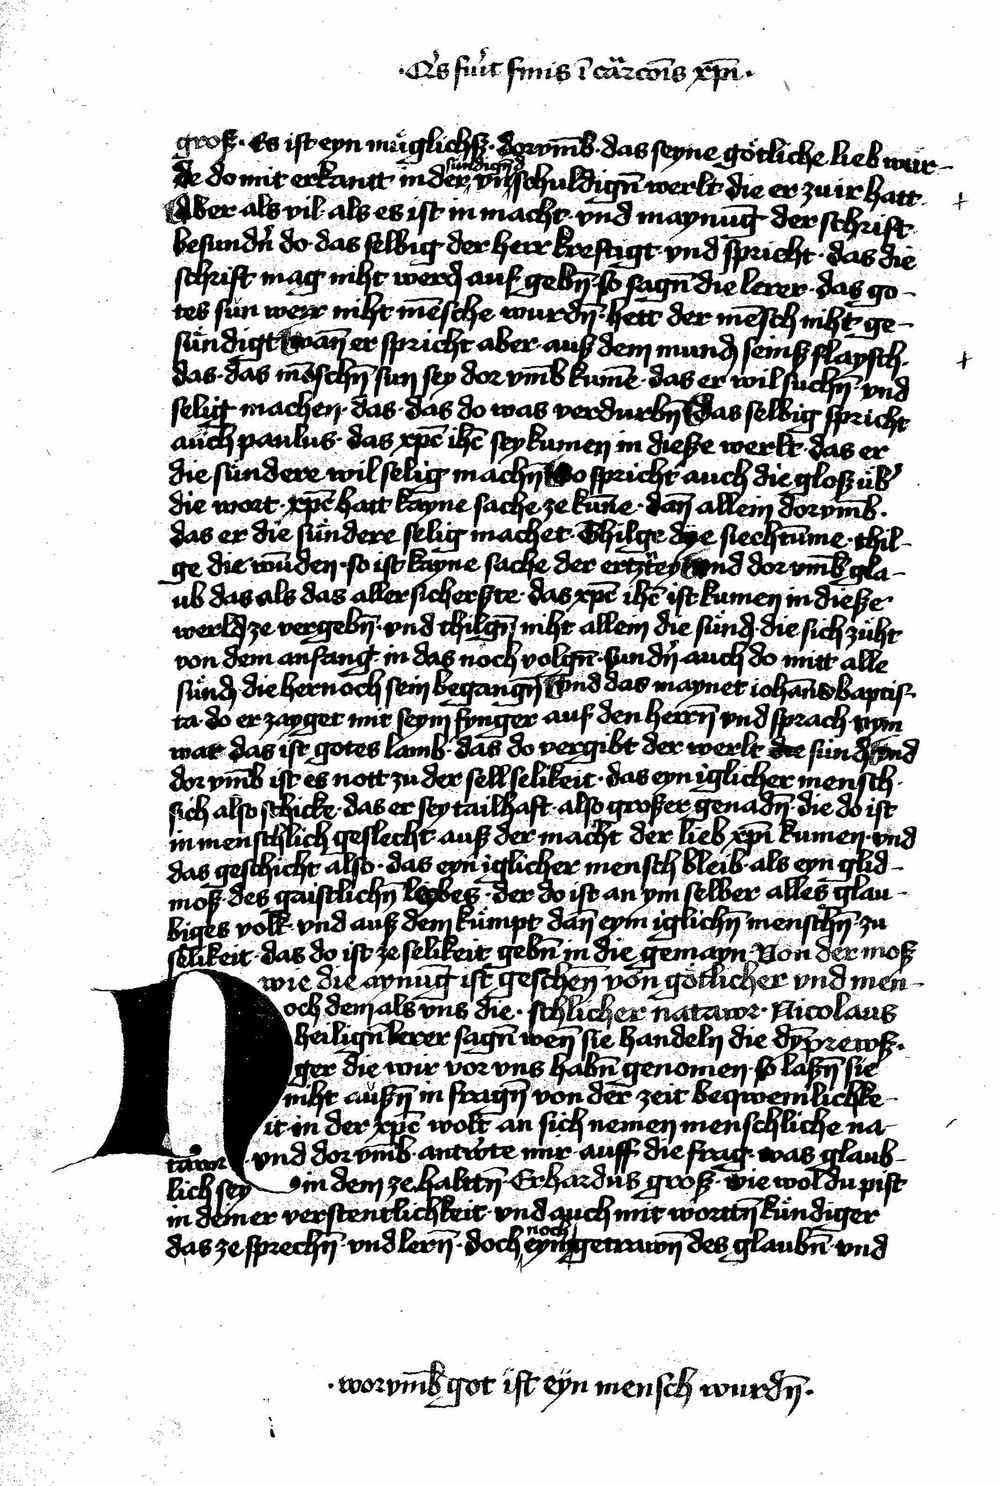 ·Q͛s fu͛it finis i̅ ca̅rco̅is xp̅i·
groß· Es ist eyn mu̇glichß· dorvm̅b· das seyne gotliche lieb wur-
de do mit erkantt in der sündign̅d vn̅schuldign̅ werlt die er zu ir hatt·
Aber als vil als es ist in macht· vnd maynu̅g der schrift
besundn̅ do· das selbig der herr kreftigt· vnd spricht· das die
schrift mag niht werd̅ auf gebn̅· so sagn̅ die lerer· das go-
tes sun wer niht me̅sche wurdn̅· hett der me̅sch niht ge-
sündigt wan̅ er spricht aber auß dem mund̅ seinß flaysch·
das· das me̅schn̅ sun sey dor vm̅b kume̅· das er wil suchn̅· vnd
selig machen· das· das do was verdurbn̅ das selbig spricht
auch paulus· das xpc̅ ihc̅ sey kumen in dieße werlt· das er
die sündere wil selig machn̅ So spricht auch die gloß üb͛
die wort· xpc̅ hatt kayne sache ze kume̅· dan̅ allein dorvm̅b·
das er die sündere selig machet· Thilge dye siechtu̅me· thil-
ge die wu̅den· so ist kayne sache der ertztey vnd dor vm̅b gla-
ub das als das aller sicherste· das xpc̅ ihc̅ ist kumen in dieße
werld̅ ze vergebn̅· vnd thilgn̅ niht allein die sünd̅· die sich züht
von dem anfang· in das noch volgn̅· sundn̅ auch do mitt alle
sünd̅ die hernoch sein begangn̅ vnd das maynet ioha̅nes baptis-
ta· do er zayget mit seym fynger auf den herrn̅ vnd sprach· nym
war das ist gotes lamb· das do vergibt der werlt die sünd̅ vnd
dor vm̅b ist es nott zu der sell selikeit· das eyn iglicher mensch·
sich also schicke· das er sey tailhaft· also großer genadn̅· die do ist
in menschlich geslecht· auß der macht der lieb xp̅i kumen· vnd
das geschicht also· das eyn iglicher mensch bleib· als eyn glid-
moß· des gaistlichn̅ leybes· der do ist an ym selber alles glau-
biges volk· vnd auß dem kümpt dan̅ eym iglichn̅ menschn̅ zu
selikeit· das do ist ze selikeit gebn̅ in die gemayn· Von der moß
wie die aynu̅g ist geschen̅ von gotlicher vnd men-
Noch dem als vns die· schlicher natawr· Nicolaus
heilign̅ lerer sagn̅ wen̅ sie handeln die dy̅prewß·
ger die wir vor vns habn̅ genomen· so laßn̅ sie
niht außn̅ in fragn̅ von der zeit beqwemlichke-
it in der xpc̅ wolt an sich nemen menschliche na-
tawr· vnd dor vm̅b· antw͛te mir auff die frag· was glaub-
lich sey in dem ze haltn̅· Erhardus groß· wie wol du pist
in deiner verstentlichkeit· vnd auch mit wortn̅ kündiger
das ze sprechn̅· vnd lern̅· doch noch eyn getrawn̅ des glaubn̅· vnd
·worvm̅b got ist eyn mensch wurdn̅·